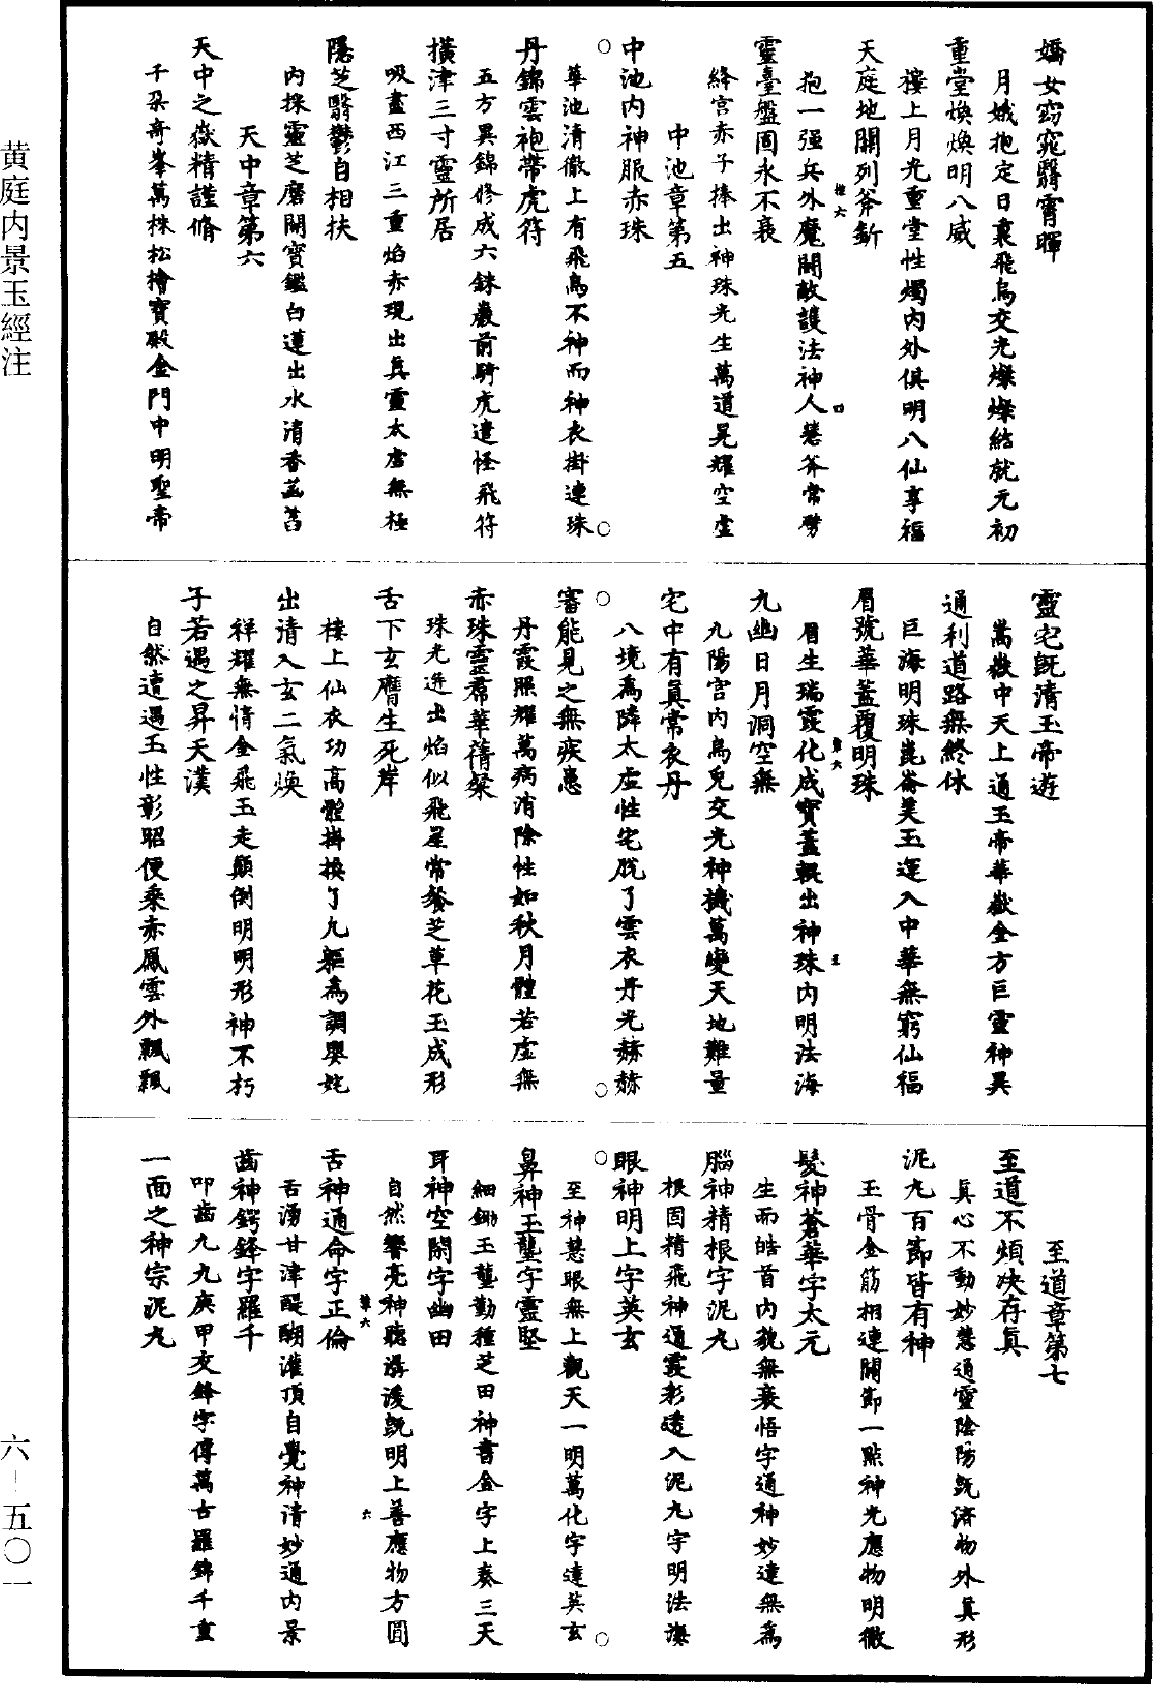 嬌女窈窕翳霄暉
月娥抱定日裏飛烏交光燦燦結就元初
重堂煥煥明八威
樓上月光重堂性燭內外俱明八仙享福
天庭地關列斧斲
抱一強兵外魔關敵護法神人慧斧常劈
靈臺盤固永不衰
絳宮赤子捧出神珠光生萬道晃耀空虛
中池章第五
中池內神服赤珠
華池清徹上有飛鳥不神而神衣掛連珠
丹錦雲袍帶虎符
五方異錦修成六銖巖前騎虎遣怪飛符
橫津三寸靈所居
吸盡西江三重焰赤現出真靈太虛無極
隱芝翳鬱自相扶
內採靈芝磨開寶鑑白蓮出水清香菡萏
天中章第六
天中之嶽精謹脩
千朶奇峯萬株松檜寶殿金門中明聖帝
靈宅既清玉帝遊
嵩嶽中天上通玉帝華嶽金方巨靈神異
通利道路無終休
巨海明珠崑崙美玉運入中華無窮仙福
眉號華蓋覆明珠
眉生瑞霞化成寶蓋輥出神珠內明法海
九幽日月洞空無
九陽宮內烏兔交光神機萬變天地難量
宅中有真常衣丹
八境為隣太虛性宅脫了雲衣丹光赫赫
審能見之無疾患
丹霞照耀萬病消除性如秋月體若虛無
赤珠靈帬華蒨粲
珠光迸出焰似飛星常餐芝草花玉成形
舌下玄膺生死岸
樓上仙衣功高體掛換了凡軀為調嬰姹
出清入玄二氣煥
祥耀無情金飛玉走顛倒明明形神不朽
子若遇之昇天漢
自然遭遇玉性彰昭便乘赤鳳雲外飄飄
至道章第七
至道不煩决存真
真心不動妙慧通靈陰陽既濟物外真形
泥丸百節皆有神
玉骨金筋相連關節一點神光應物明徹
髮神蒼華字太元
生而皓首內貌無衰悟字通神妙達無為
腦神精根字泥丸
根固精飛神通霞彩透入泥丸字明法海
眼神明上字英玄
至神慧眼無上觀天一明萬化字達英玄
鼻神玉壟字靈堅
細鋤玉壟勤種芝田神書金字上奏三天
耳神空閑字幽田
自然響亮神聽潺湲既明上善應物方圓
舌神通命字正倫
舌湧甘津醍醐灌頂自覺神清妙通內景
齒神崿鋒字羅千
叩齒九九庚甲交鋒字傳萬古羅錦千重
一面之神宗泥丸
黃庭內景玉經注
六—五〇一